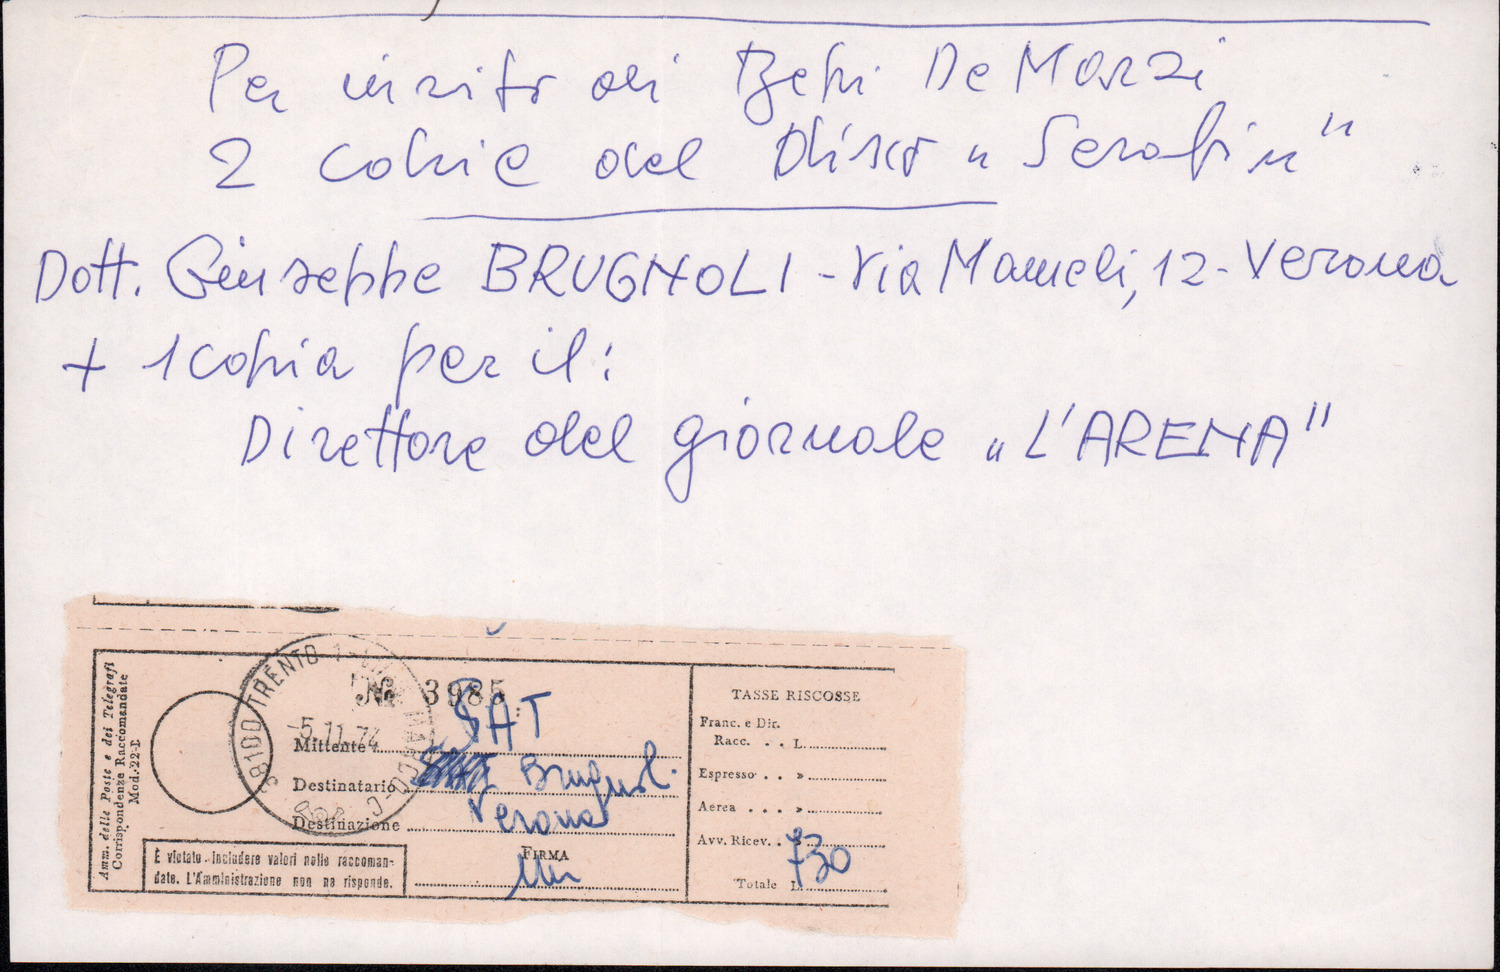 Per invito di Bepi De Marzi
2 copie del Disco „Serafin"
Dott. Giuseppe BRUGNOLI - Via Mameli, 12 - Verona
+ 1 copia per il:
Direttore del giornale „L'ARENA"
Amm. delle Poste e dei Telegrafi
Corrispondenze Raccomandate
Mod. 22-E
38100 TRENTO 1
-5.11.74
№ 3985
Mittente SAT
Destinatario Brugnoli
Destinazione Verona
FIRMA
È vietato includere valori nelle raccoman-
date. L'Amministrazione non ne risponde.
TASSE RISCOSSE
Franc. e Dir.
Racc. . . L.
Espresso . . »
Aerea . . . . »
Avv. Ricev. . »
Totale L. 730